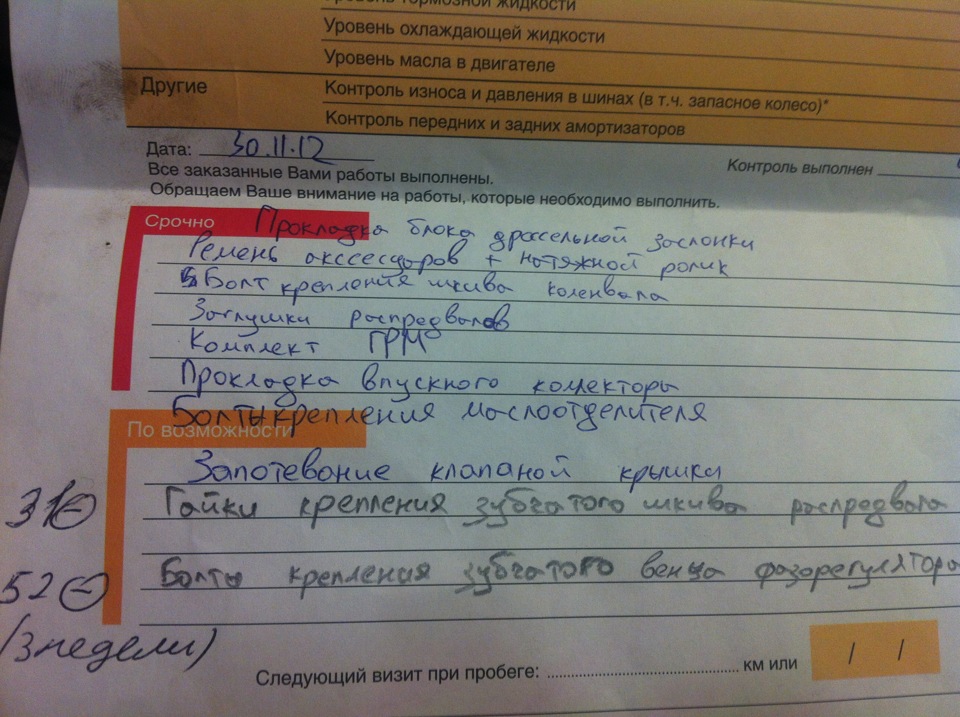 Уровень тормозной жидкости
Уровень охлаждающей жидкости
Уровень масла в двигателе
Другие
Контроль износа и давления в шинах (в т.ч. запасное колесо)*
Контроль передних и задних амортизаторов
Дата: 30.11.12
Контроль выполнен
Все заказанные Вами работы выполнены.
Обращаем Ваше внимание на работы, которые необходимо выполнить.
Срочно
Прокладка блока дроссельной заслонки
Ремень аксессуаров + натяжной ролик
Болт крепления шкива коленвала
Заглушки распредвалов
Комплект ГРМ
Прокладка впускного коллектора
Болты крепления маслоотделителя
По возможности
Запотевание клапаной крышки
Гайки крепления зубчатого шкива распредвала
Болты крепления зубчатого венца фазорегулятора
52
(3 недели)
Следующий визит при пробеге: ........ км или / /